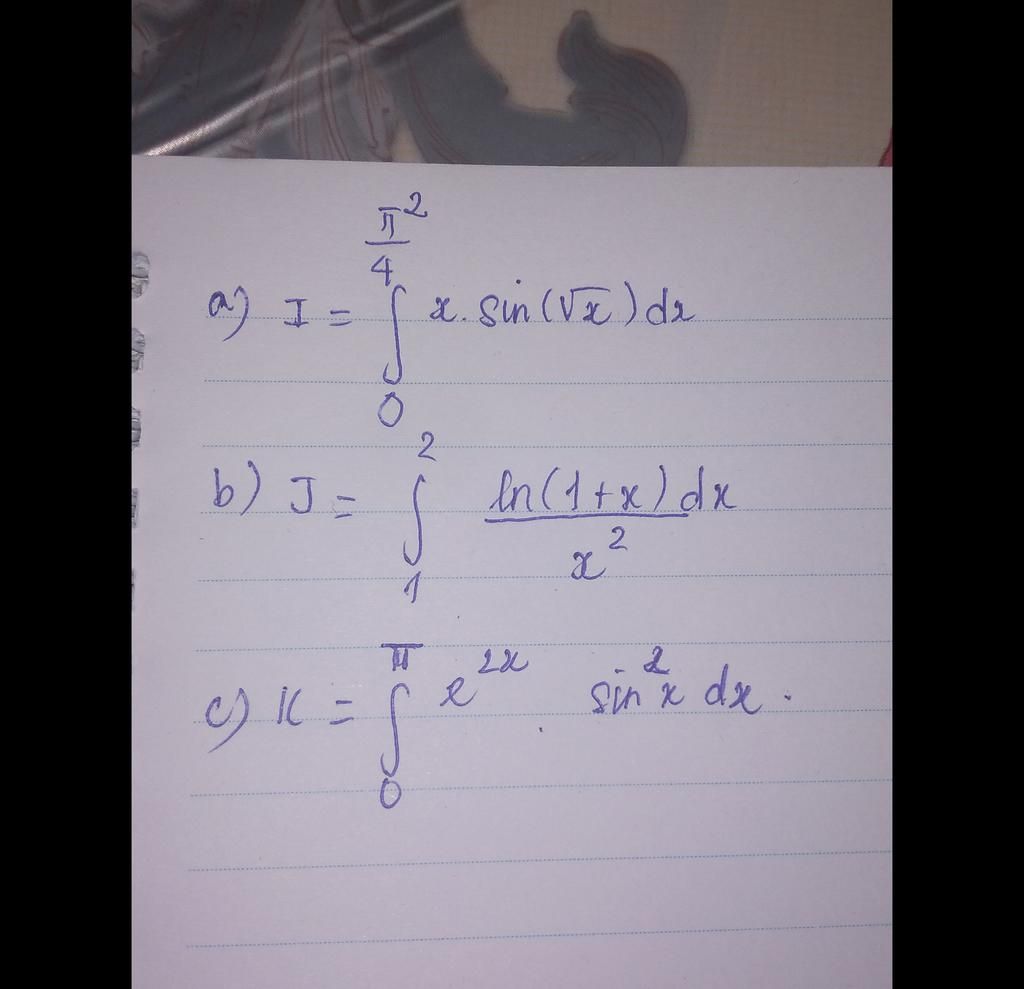 a) I = ∫₀^(π²/4) x. sin(√x) dx
b) J = ∫₁² ln(1+x) dx / x²
c) K = ∫₀^π e^(2x) . sin²x dx.